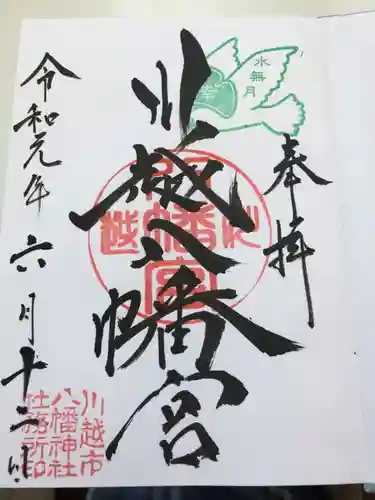 奉拝
川越八幡宮
令和元年六月十二日
水無月
川越市
八幡神社
社務所印